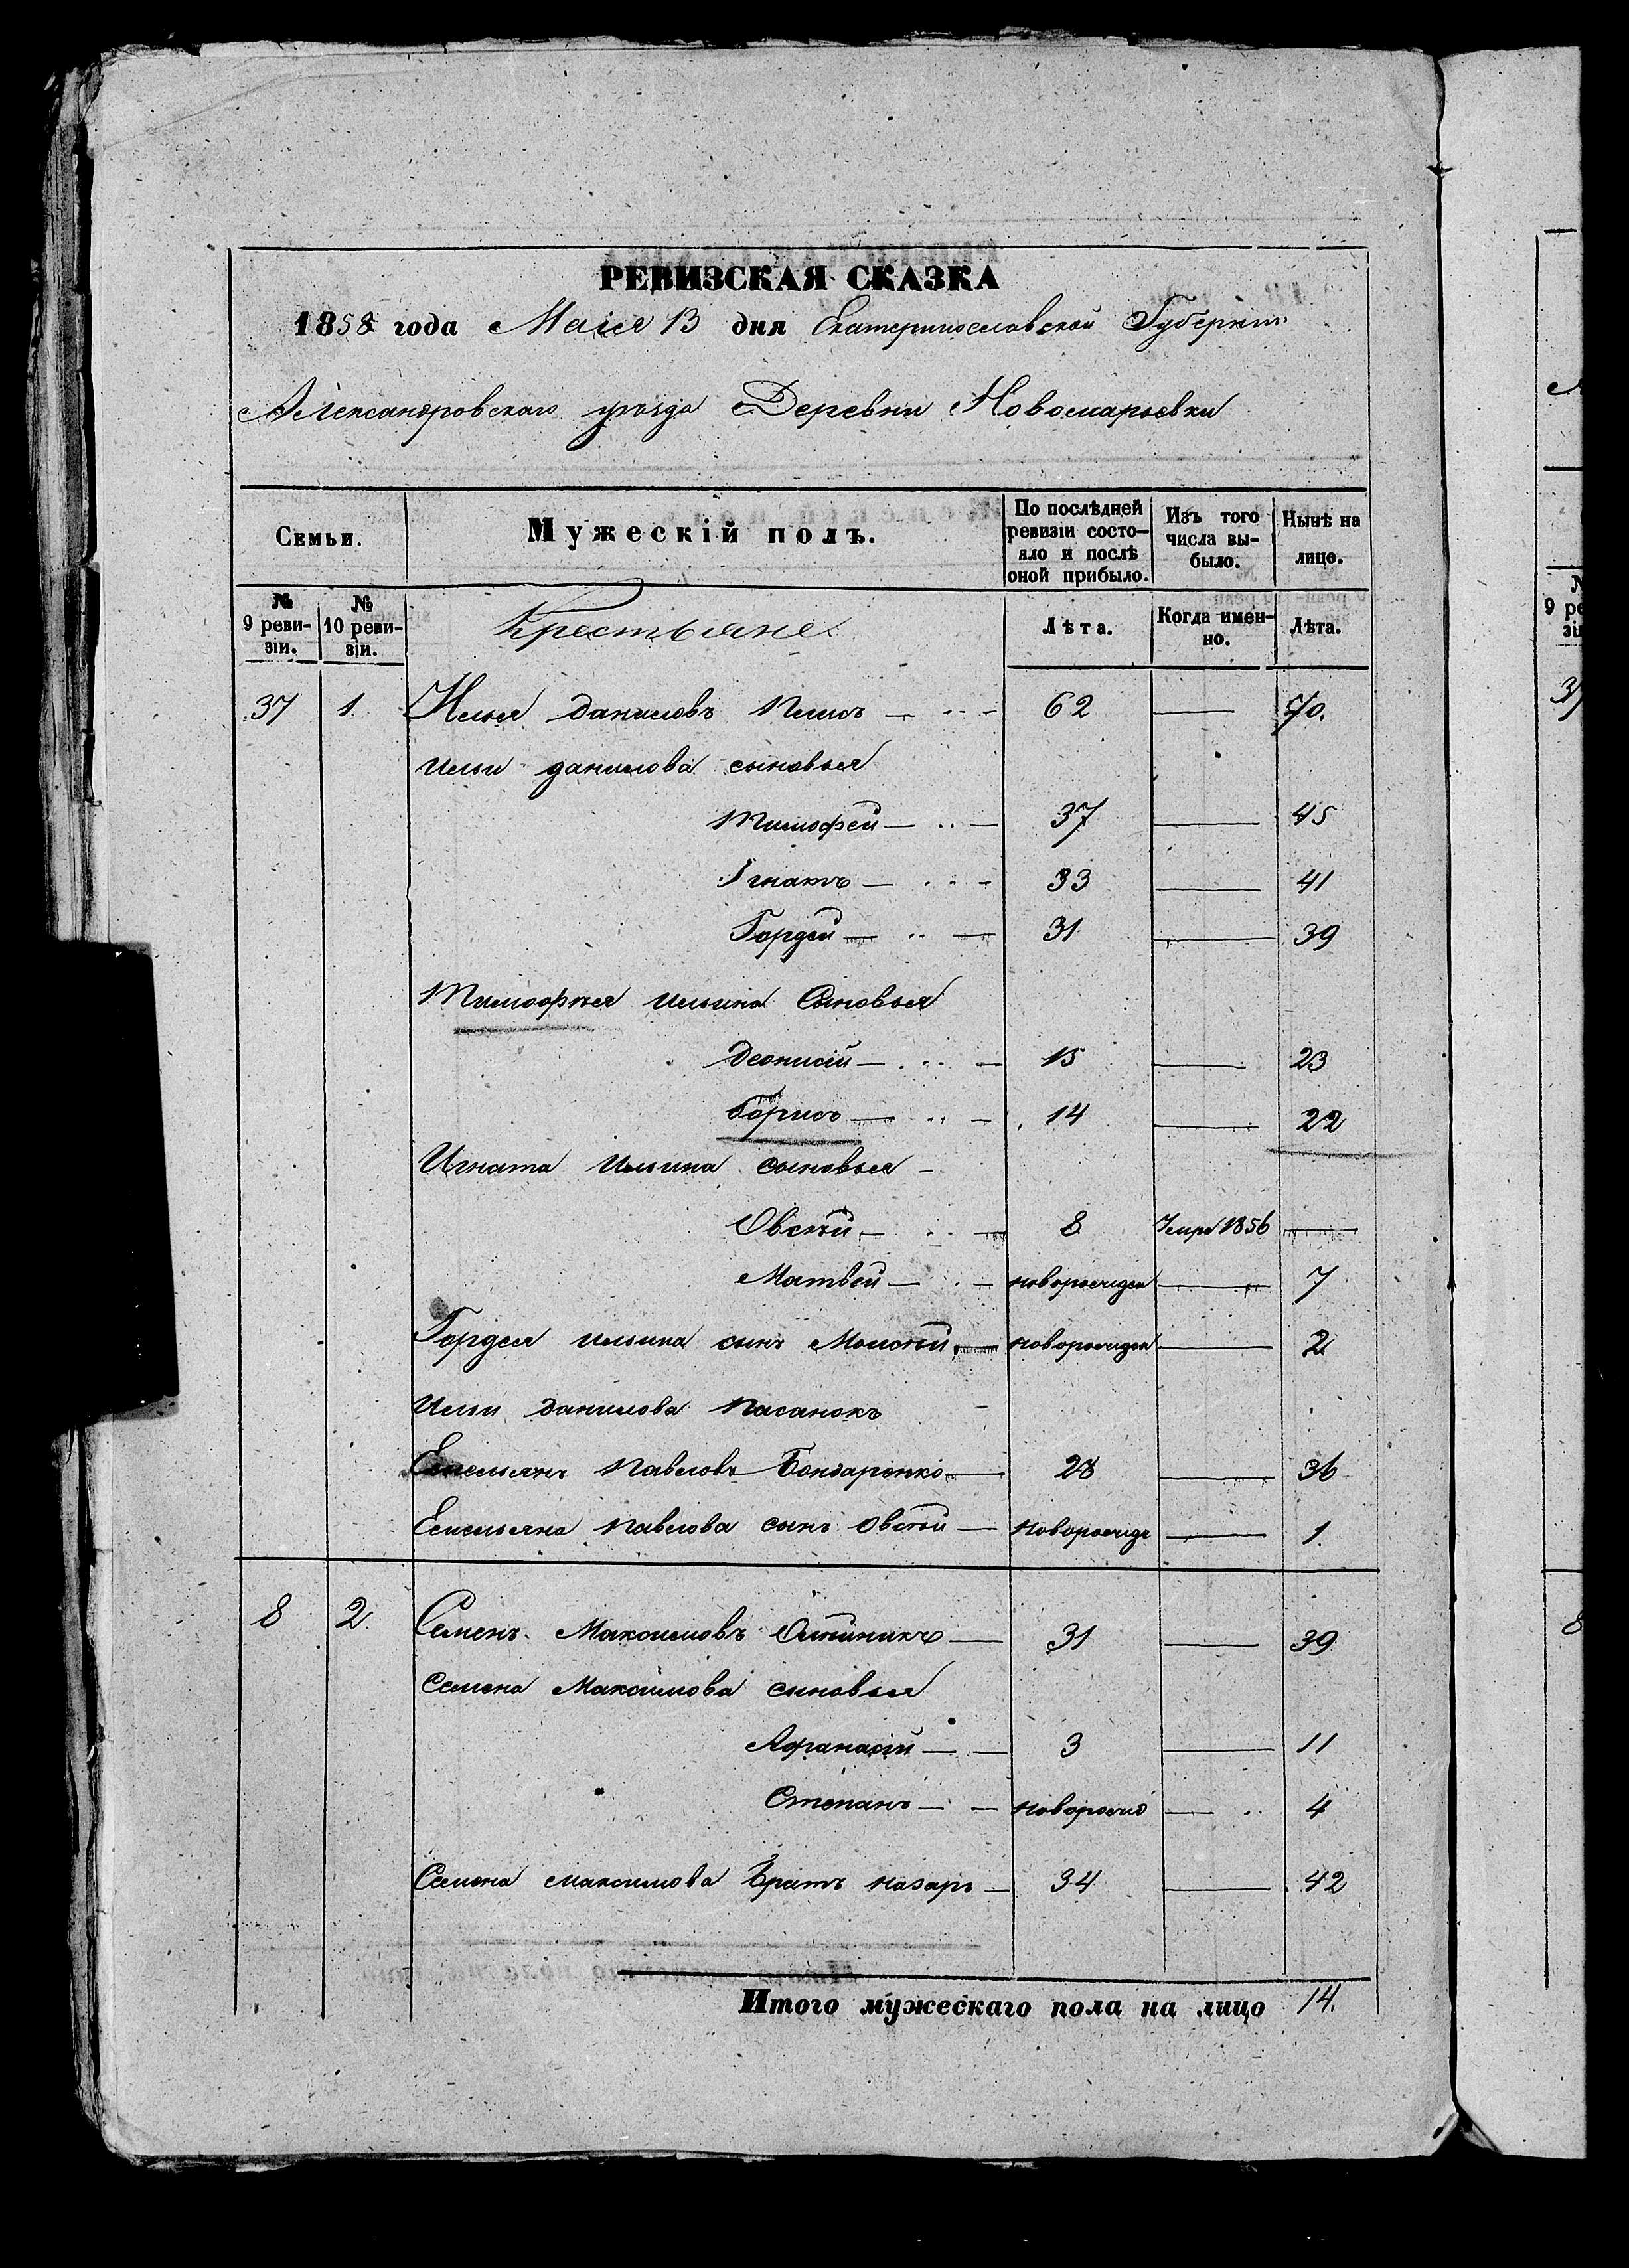 РЕВИЗСКАЯ СКАЗКА
1858 года Маія 13 дня Екатеринославской Губерніи
Александровскаго уѣзда Деревни Новомарьевки
Семьи.
Мужескій полъ.
По послѣдней ревизіи состояло и послѣ оной прибыло.
Изъ того числа выбыло.
Нынѣ на лицо.
№ 9 ревизіи.
№ 10 ревизіи.
Крестьяне
Лѣта.
Когда именно.
Лѣта.
37 1. Илья Даниловъ — 62 — 70.
Ильи данилова сыновья
Тимофей — 37 — 45
Игнатъ — 33 — 41
Гордей — 31 — 39
Тимофѣя Ильина Сыновья
Деонисій — 15 — 23
Борисъ — 14 — 22
Игната Ильина сыновья —
Овсѣй — 8 Умре 1856 —
Матвей — новорожден — 7
Гордея Ильина сынъ Моисѣй — новорожден — 2
Ильи Данилова Пасанокъ
Емельянъ Павловъ Бондаренко — 28 — 36
Емельяна Павлова сынъ Овсѣй — новорожде — 1.
8 2. Семенъ Максимовъ Олѣйникъ — 31 — 39
Семена Максимова сыновья
Афанасій — 3 — 11
Степанъ — новорожд — 4
Семена максимова Братъ назаръ — 34 — 42
Итого мужескаго пола на лицо 14.
9 ре
зіи
37
8